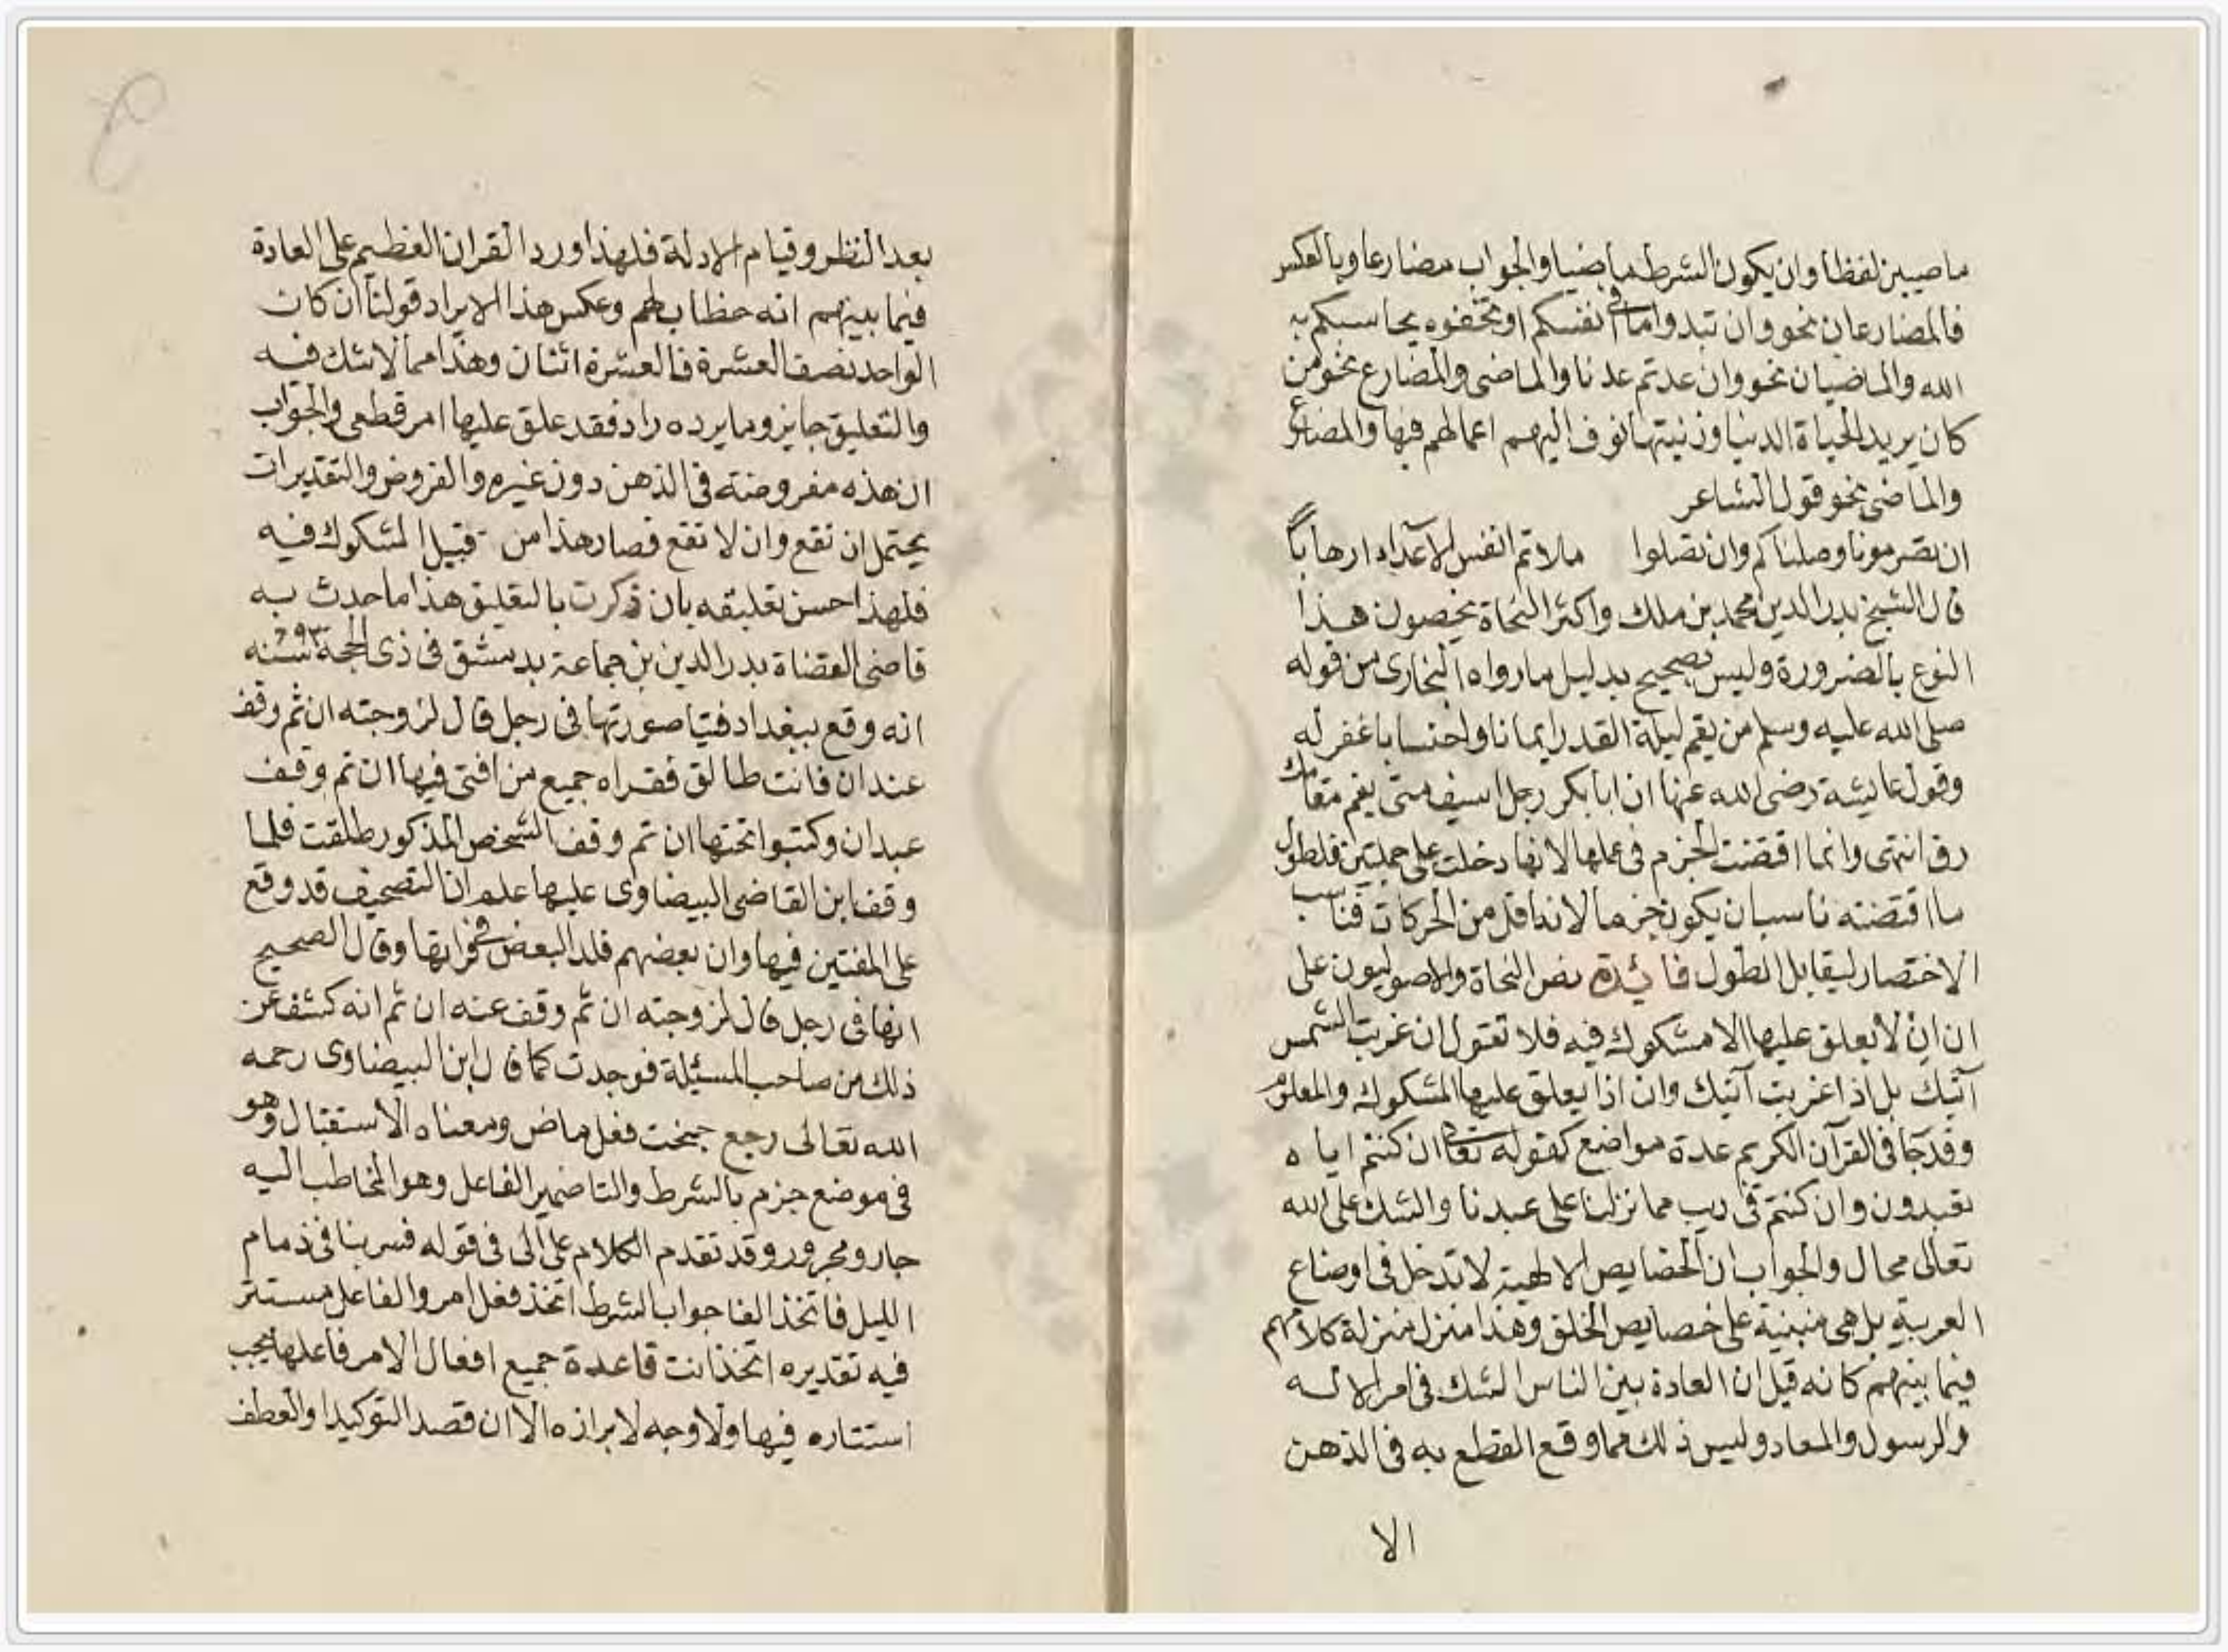 ماضيين لفظا وان يكون الشرط ماضيا والجواب مضارعا وبالعكس
فالمضارعان نحو وان تبدوا ما فى انفسكم او تخفوه يحاسبكم به
الله والماضيان نحو وان عدتم عدنا والماضى والمضارع نحو من
كان يريد الحياة الدنيا وزينتها نوف اليهم اعمالهم فيها والمضارع
والماضى نحو قول الشاعر
ان تصرمونا وصلناكم وان تصلوا ملاتم انفس الاعداء ارهاباً
قال الشيخ بدر الدين محمد بن ملك واكثر النحاة يخصون هذا
النوع بالضرورة وليس بصحيح بدليل ما رواه البخارى من قوله
صلى الله عليه وسلم من يقم ليلة القدر ايمانا واحتسابا غفر له
وقول عايشة رضى الله عنها ان ابا بكر رجل اسيف متى يقم مقامك
رق انتهى وانما اقتضت الجزم فى عملها لانها دخلت على جملتين فلطول
ما اقتضته ناسب ان يكون جزما لانه اقل من الحركات فناسب
الاختصار ليقابل الطول فائدة نص النحاة والاصوليون على
ان ان لا يعلق عليها الا مشكوك فيه فلا تقول ان غربت الشمس
آتيك بل اذا غربت آتيك وان اذا يعلق عليها المشكوك والمعلوم
وقد جا فى القرآن الكريم عدة مواضع كقوله تعا ان كنتم اياه
تعبدون وان كنتم فى ريب مما نزلنا على عبدنا والشك على الله
تعالى محال والجواب ان الخصايص الالهية لا تدخل فى اوضاع
العربية بل هى مبنية على خصايص الخلق وهذا منزل منزلة كلامهم
فيما بينهم كانه قيل ان العادة بين الناس الشك فى امر الاله
والرسول والمعاد وليس ذلك مما وقع القطع به فى الذهن
الا
بعد النظر وقيام الادلة فلهذا ورد القران العظيم على العادة
فيما بينهم انه خطاب لهم وعكس هذا الايراد قولنا ان كان
الواحد نصف العشرة فالعشرة اثنان وهذا مما لا شك فيه
والتعليق جايز وما يرده راد فقد علق عليها امر قطعى والجواب
ان هذه مفروضة فى الذهن دون غيره والفروض والتقديرات
يحتمل ان تقع وان لا تقع فصار هذا من قبيل المشكوك فيه
فلهذا حسن تعليقه بان ذكرت بالتعليق هذا ما حدث به
قاضى القضاة بدر الدين بن جماعة بدمشق فى ذى الحجة سنة
انه وقع ببغداد فتيا صورتها فى رجل قال لزوجته ان ثم وقف
عندان فانت طالق فقراه جميع من افتى فيها ان تم وقف
عبدان وكتبوا تحتها ان تم وقف الشخص المذكور طلقت فلما
وقف ابن القاضى البيضاوى عليها علم ان التصحيف قد وقع
على المفتين فيها وان بعضهم قلد البعض فى قراتها وقال الصحيح
انها فى رجل قال لزوجته ان ثم وقف عنه ان ثم انه كشف عن
ذلك من صاحب المسئلة فوجدت كما قال ابن البيضاوى رحمه
الله تعالى رجع جنحت فعل ماض ومعناه الاستقبال وهو
فى موضع جزم بالشرط والتا ضمير الفاعل وهو المخاطب اليه
جار ومجرور وقد تقدم الكلام على الى فى قوله فسر بنا فى ذمام
الليل فاتخذ الفا جواب الشرط اتخذ فعل امر والفاعل مستتر
فيه تقديره اتخذ انت قاعدة جميع افعال الامر فاعلها يجب
استتاره فيها ولا وجه لابرازه الا ان قصد التوكيد او العطف